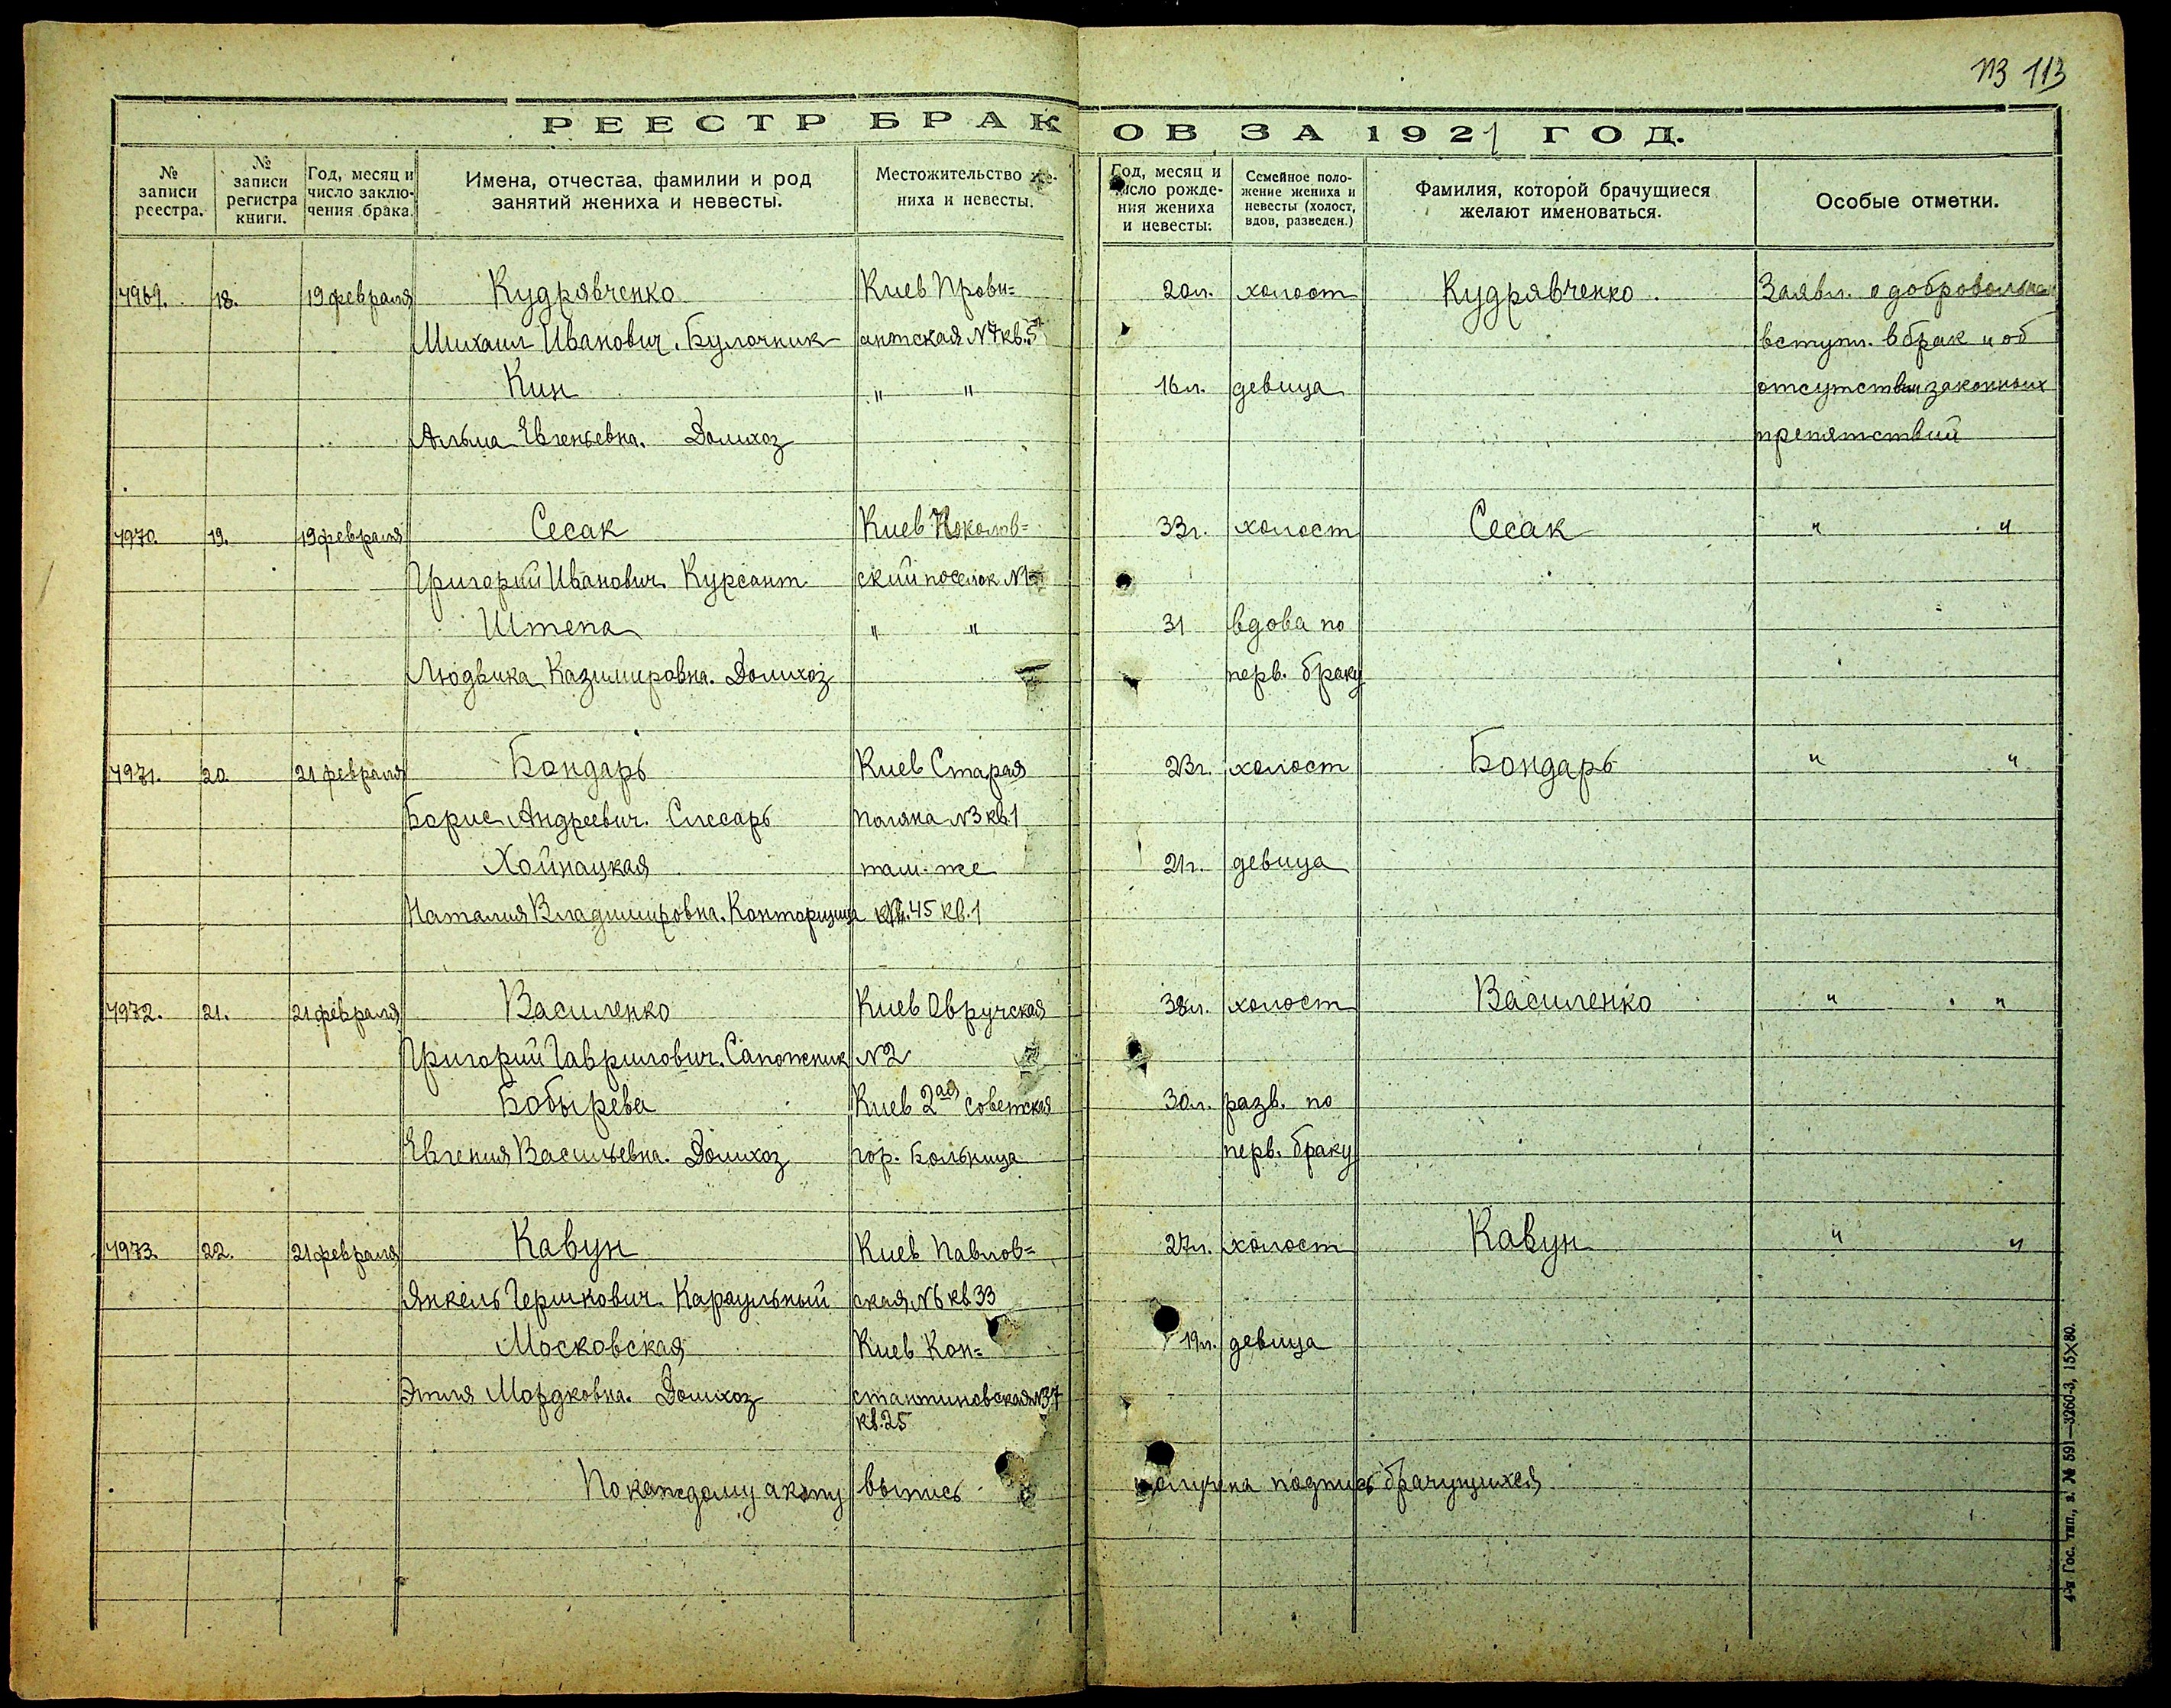 113 113
РЕЕСТР БРАКОВ ЗА 1921 ГОД.
№ записи реестра.
№ записи регистра книги.
Год, месяц и число заключения брака.
Имена, отчества, фамилии и род занятий жениха и невесты.
Местожительство жениха и невесты.
Год, месяц и число рождения жениха и невесты.
Семейное положение жениха и невесты (холост, вдов, разведен.)
Фамилия, которой брачущиеся желают именоваться.
Особые отметки.
4969. 18. 19 февраля Кудрявченко Киев Прови= 20л. холост Кудрявченко Заявл. о добровольном
Михаил Иванович. Булочник антская №7 кв.5 вступл. в брак и об
Кин " " 16л. девица отсутствии законных
Альма Евгеньевна. Домихоз препятствий
4970. 19. 19 февраля Сесак Киев 33г. холост Сесак " "
Григорий Иванович. Курсант ский поселок №1
Штепа " " 31 вдова по
Людвика Казимировна. Домихоз перв. браку
4971. 20. 21 февраля Бондарь Киев Старая 23г. холост Бондарь " "
Борис Андреевич. Слесарь поляна №3 кв.1
Хойнацкая там-же 21г. девица
Наталия Владимировна. Конторщица 45 кв.1
4972. 21. 21 февраля Василенко Киев Овручская 38л. холост Василенко " "
Григорий Гаврилович. Сапожник №2
Бобырева Киев 2ая советская 30л. разв. по
Евгения Васильевна. Домихоз гор. больница перв. браку
4973. 22. 21 февраля Кавун Киев Павлов= 27л. холост Кавун " "
Янкель Гершкович. Караульный ская №6 кв 33
Московская Киев Кон= 19л. девица
Этля Мордковна. Домихоз стантиновская №37
кв.25
По каждому акту выпись получена подпись брачущихся
4-я Гос. тип., з. № 591—3260-3, 15×80.